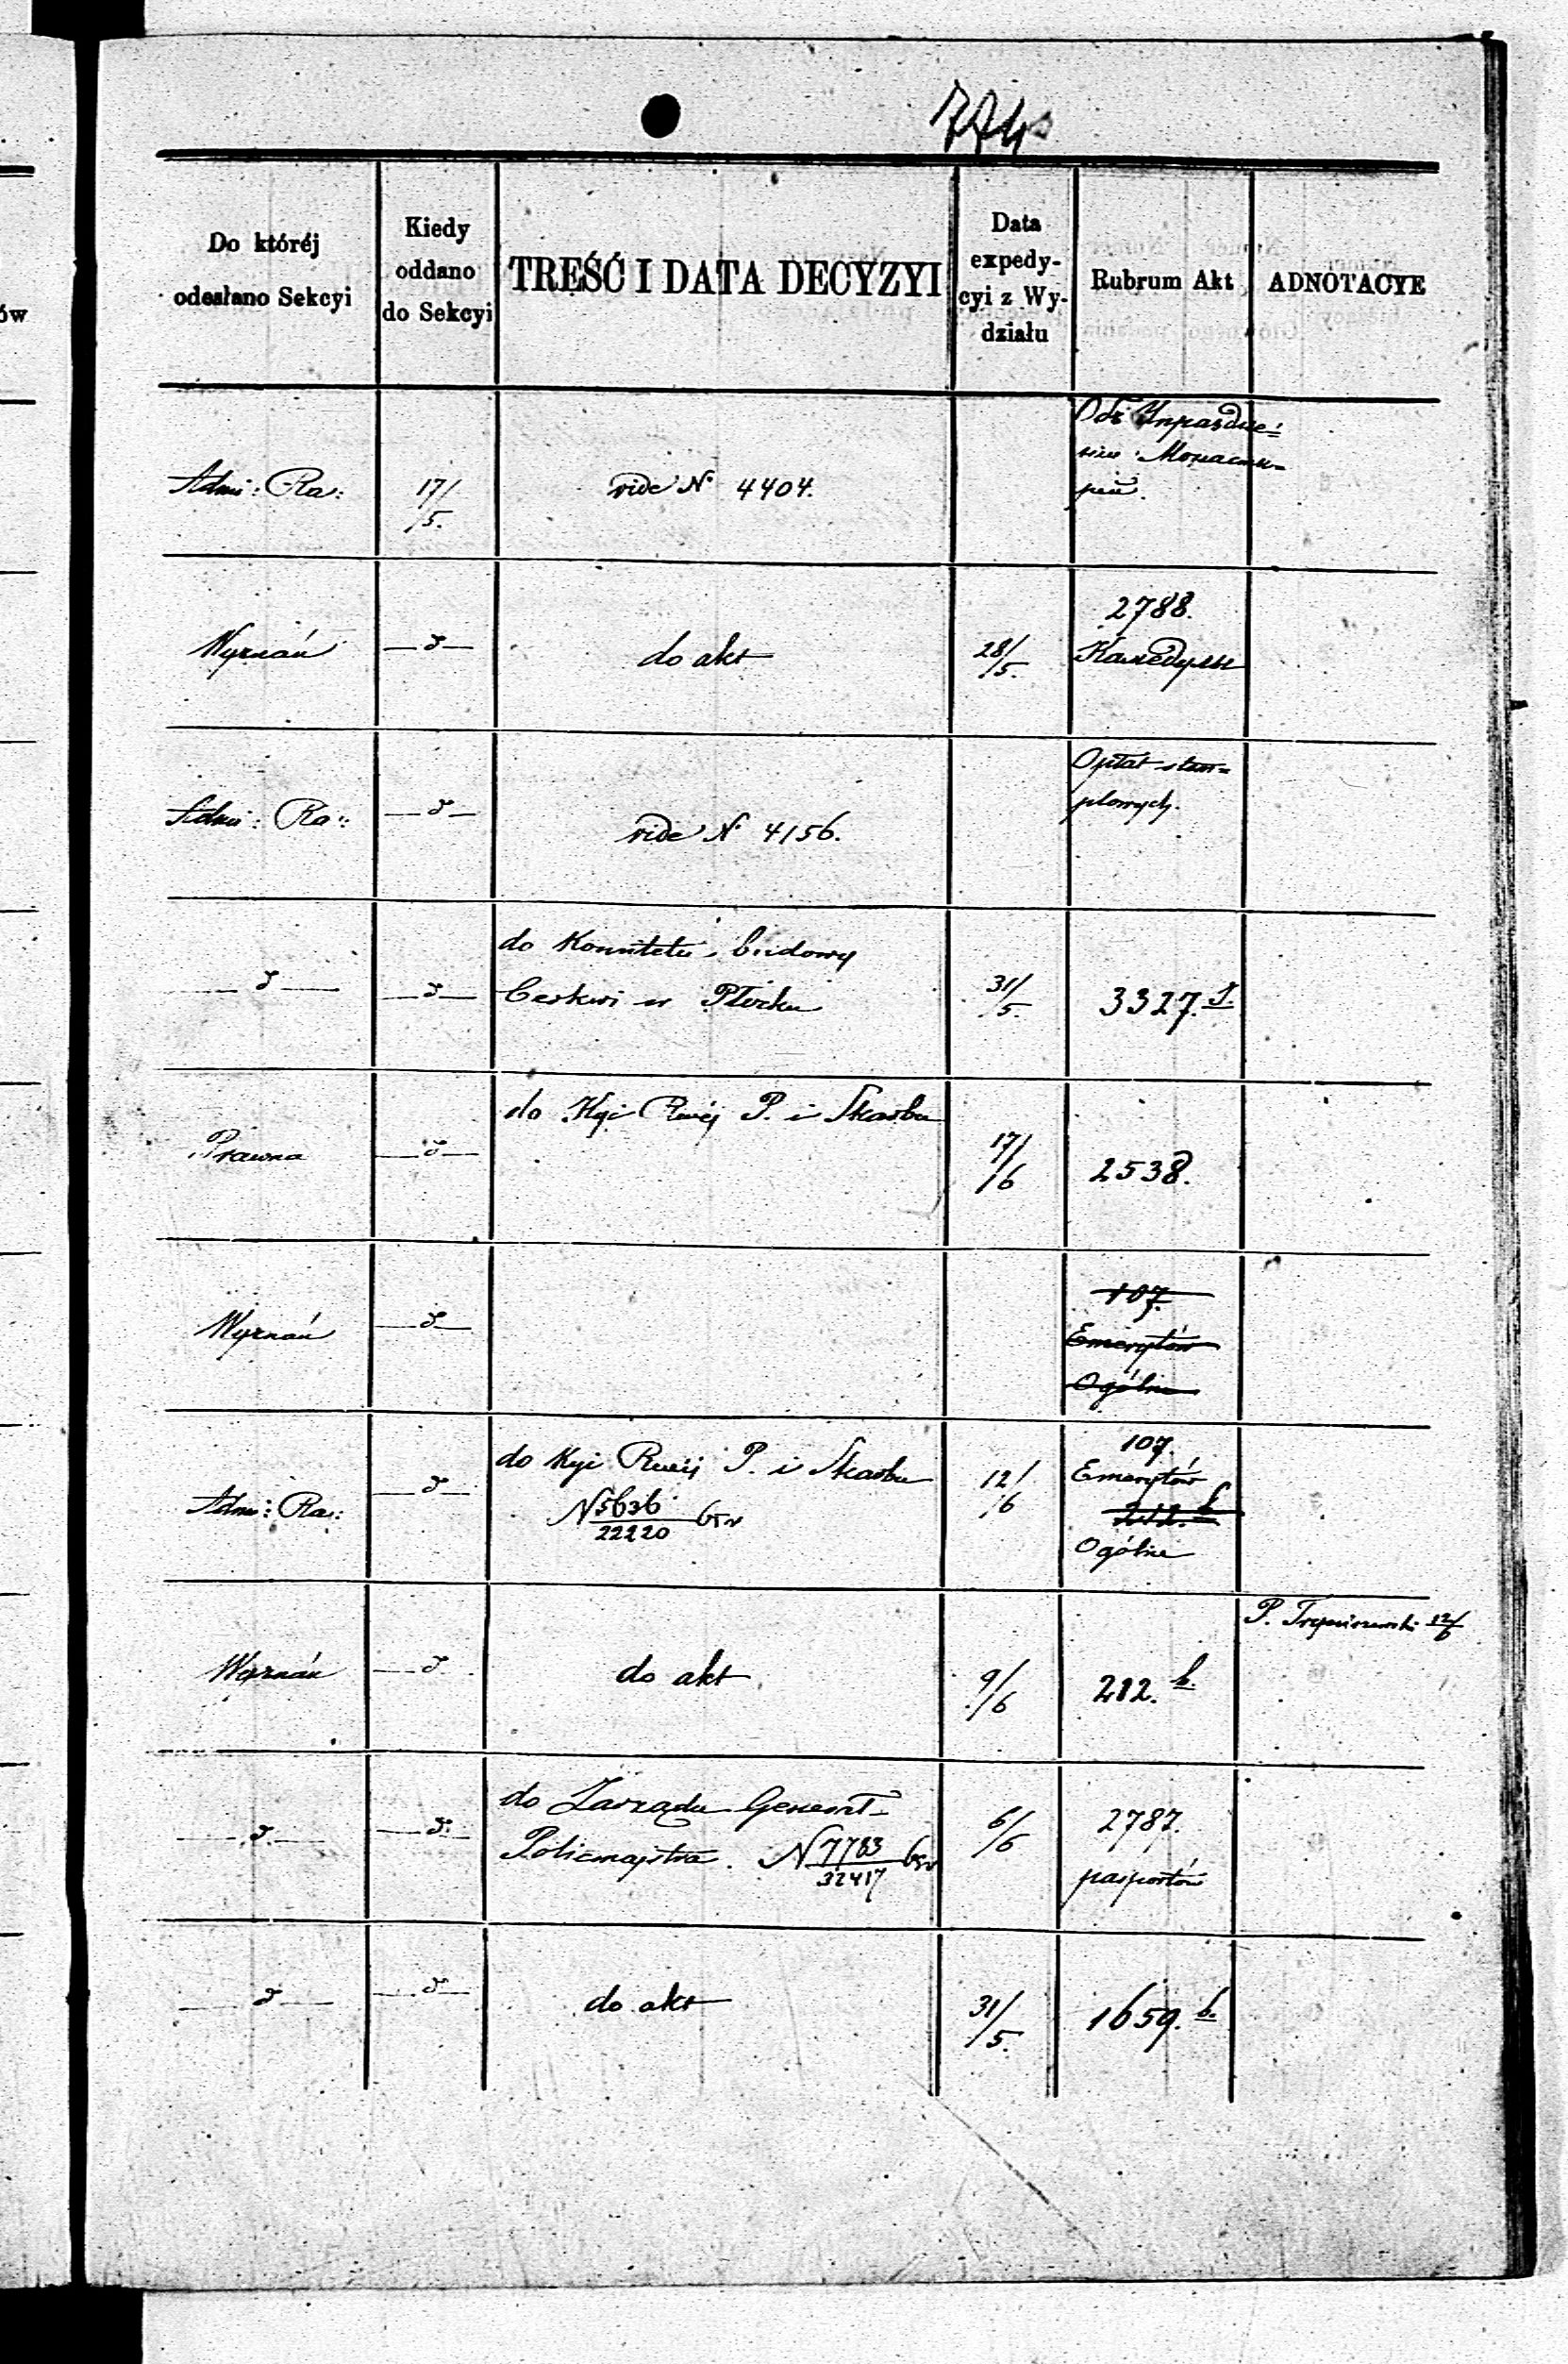 774
Do któréj
odesłano Sekcyi
Kiedy
oddano
do Sekcyi
TREŚĆ I DATA DECYZYI
Data
expedy-
cyi z Wy-
działu
Rubrum Akt
ADNOTACYE
Adm: Ra:
17/5.
vide № 4404.
Объ Упраздне-
нiи Монасты-
рей.
Wyznań
—d—
do akt
28/5.
2788.
Adm: Ra:
—d—
vide № 4156.
Opłat stem-
plowych.
—d—
—d—
do Komitetu budowy
Cerkwi w Płocku
31/5.
3327.
Prawna
—d—
do Kyi Rwéj P. i Skarbu
17/6
2538.
Wyznań
—d—
107.
Emerytów
Ogólne
Adm: Ra:
—d—
do Kyi Rwéj P. i Skarbu
N 5636/22220
12/6
107.
Emerytów
212. b
Ogólne
Wyznań
—d—
do akt
9/6
212. b.
P. 12/6
—d—
—d—
do Zarządu Generał-
Policmajstra. N 7783/32417
6/6
2787.
paszportów
—d—
—d—
do akt
31/5.
1659. b.